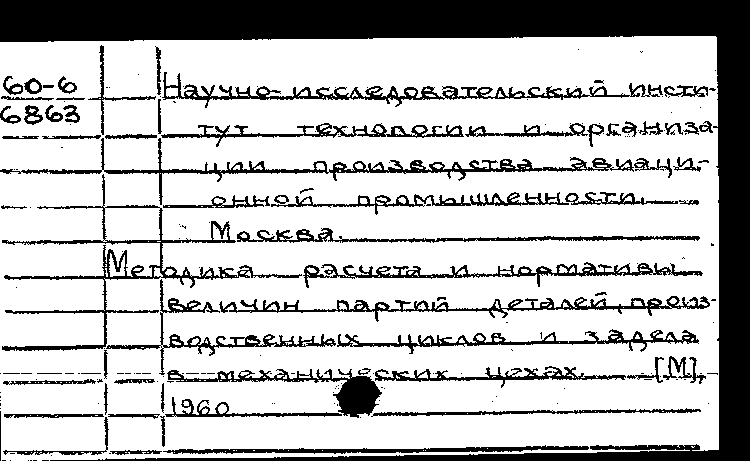 60-6
6863
Научно-исследовательский инсти-
тут технологии и организа-
ции производства авиаци-
онной промышленности.
Москва.
Методика расчета и нормативы
величин партий деталей, произ-
водственных циклов и задела
в механических цехах. [М],
1960